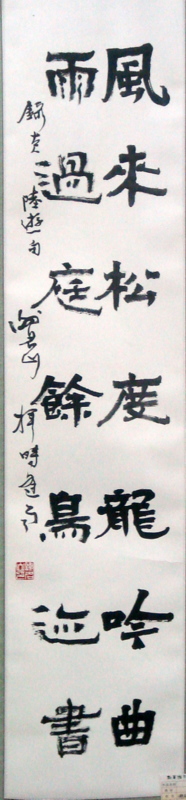 風來松度龍吟曲
雨過庭餘鳥迹書
錄
陸游句
時